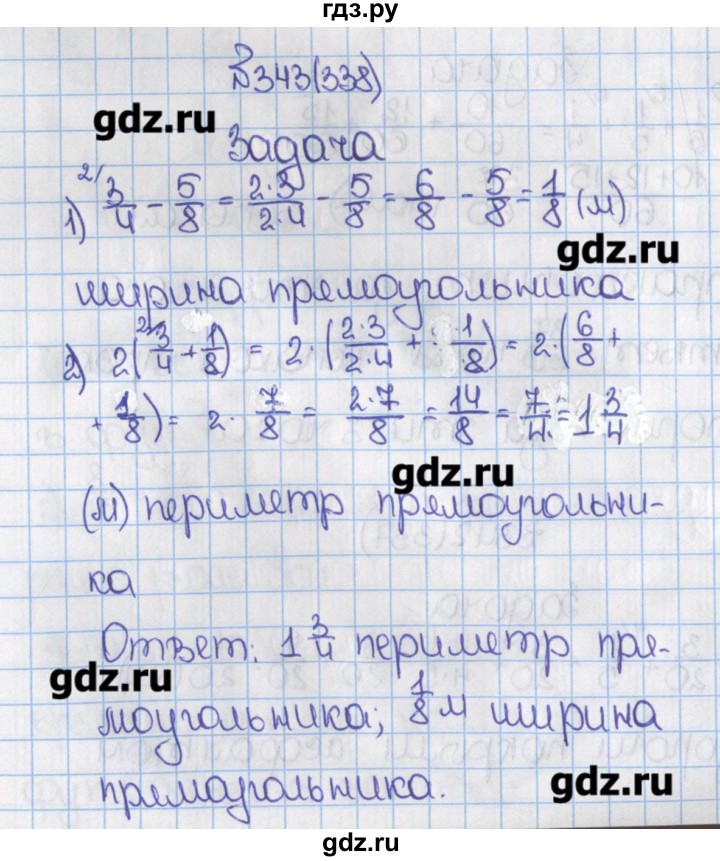 гдз.ру
№343(338)
gdz.ru
Задача
1) 2/ 3/4 - 5/8 = 2·3/2·4 - 5/8 = 6/8 - 5/8 = 1/8 (м)
gdz.ru
ширина прямоугольника
2) 2(2/ 3/4 + 1/8) = 2·(2·3/2·4 + 1/8) = 2·(6/8 +
+ 1/8) = 2· 7/8 = 2·7/8 = 14/8 = 7/4 = 1 3/4
gdz.ru
(м) периметр прямоугольни-
ка
Ответ: 1 3/4 периметр пря-
gdz.ru
моугольника; 1/8 м ширина
прямоугольника.
gdz.ru
gdz.ru